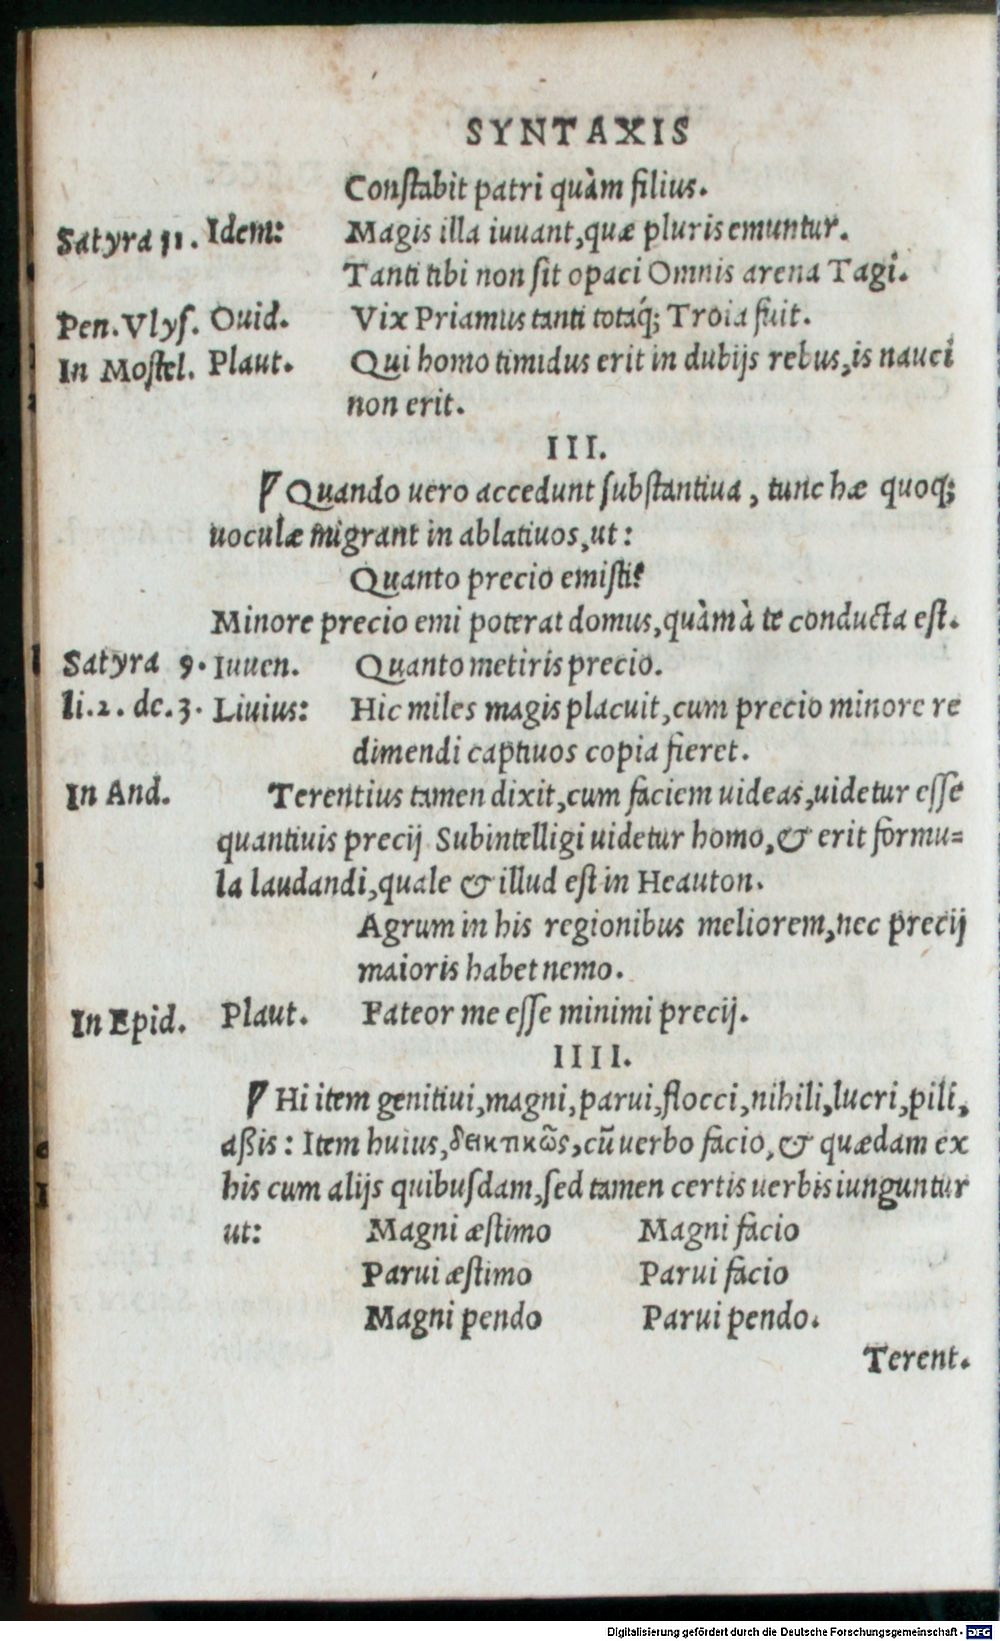 SYNTAXIS
Constabit patri quàm filius.
Satyra 11. Idem: Magis illa iuuant, quæ pluris emuntur.
Tanti tibi non sit opaci Omnis arena Tagi.
Pen. Vlys. Ouid. Vix Priamus tanti totaq́; Troia fuit.
In Mostel. Plaut. Qui homo timidus erit in dubijs rebus, is nauci
non erit.
III.
Quando uero accedunt substantiua, tunc hæ quoq;
uoculæ migrant in ablatiuos, ut:
Quanto precio emisti?
Minore precio emi poterat domus, quàm à te conducta est.
Satyra 9. Iuuen. Quanto metiris precio.
li. 2. dc. 3. Liuius: Hic miles magis placuit, cum precio minore re
dimendi captiuos copia fieret.
In And. Terentius tamen dixit, cum faciem uideas, uidetur esse
quantiuis precij Subintelligi uidetur homo, & erit formu=
la laudandi, quale & illud est in Heauton.
Agrum in his regionibus meliorem, nec precij
maioris habet nemo.
In Epid. Plaut. Fateor me esse minimi precij.
IIII.
Hi item genitiui, magni, parui, flocci, nihili, lucri, pili,
aßis: Item huius, δεικτικῶς, cū uerbo facio, & quædam ex
his cum alijs quibusdam, sed tamen certis uerbis iunguntur
ut: Magni æstimo Magni facio
Parui æstimo Parui facio
Magni pendo Parui pendo.
Terent.
Digitalisierung gefördert durch die Deutsche Forschungsgemeinschaft - DFG